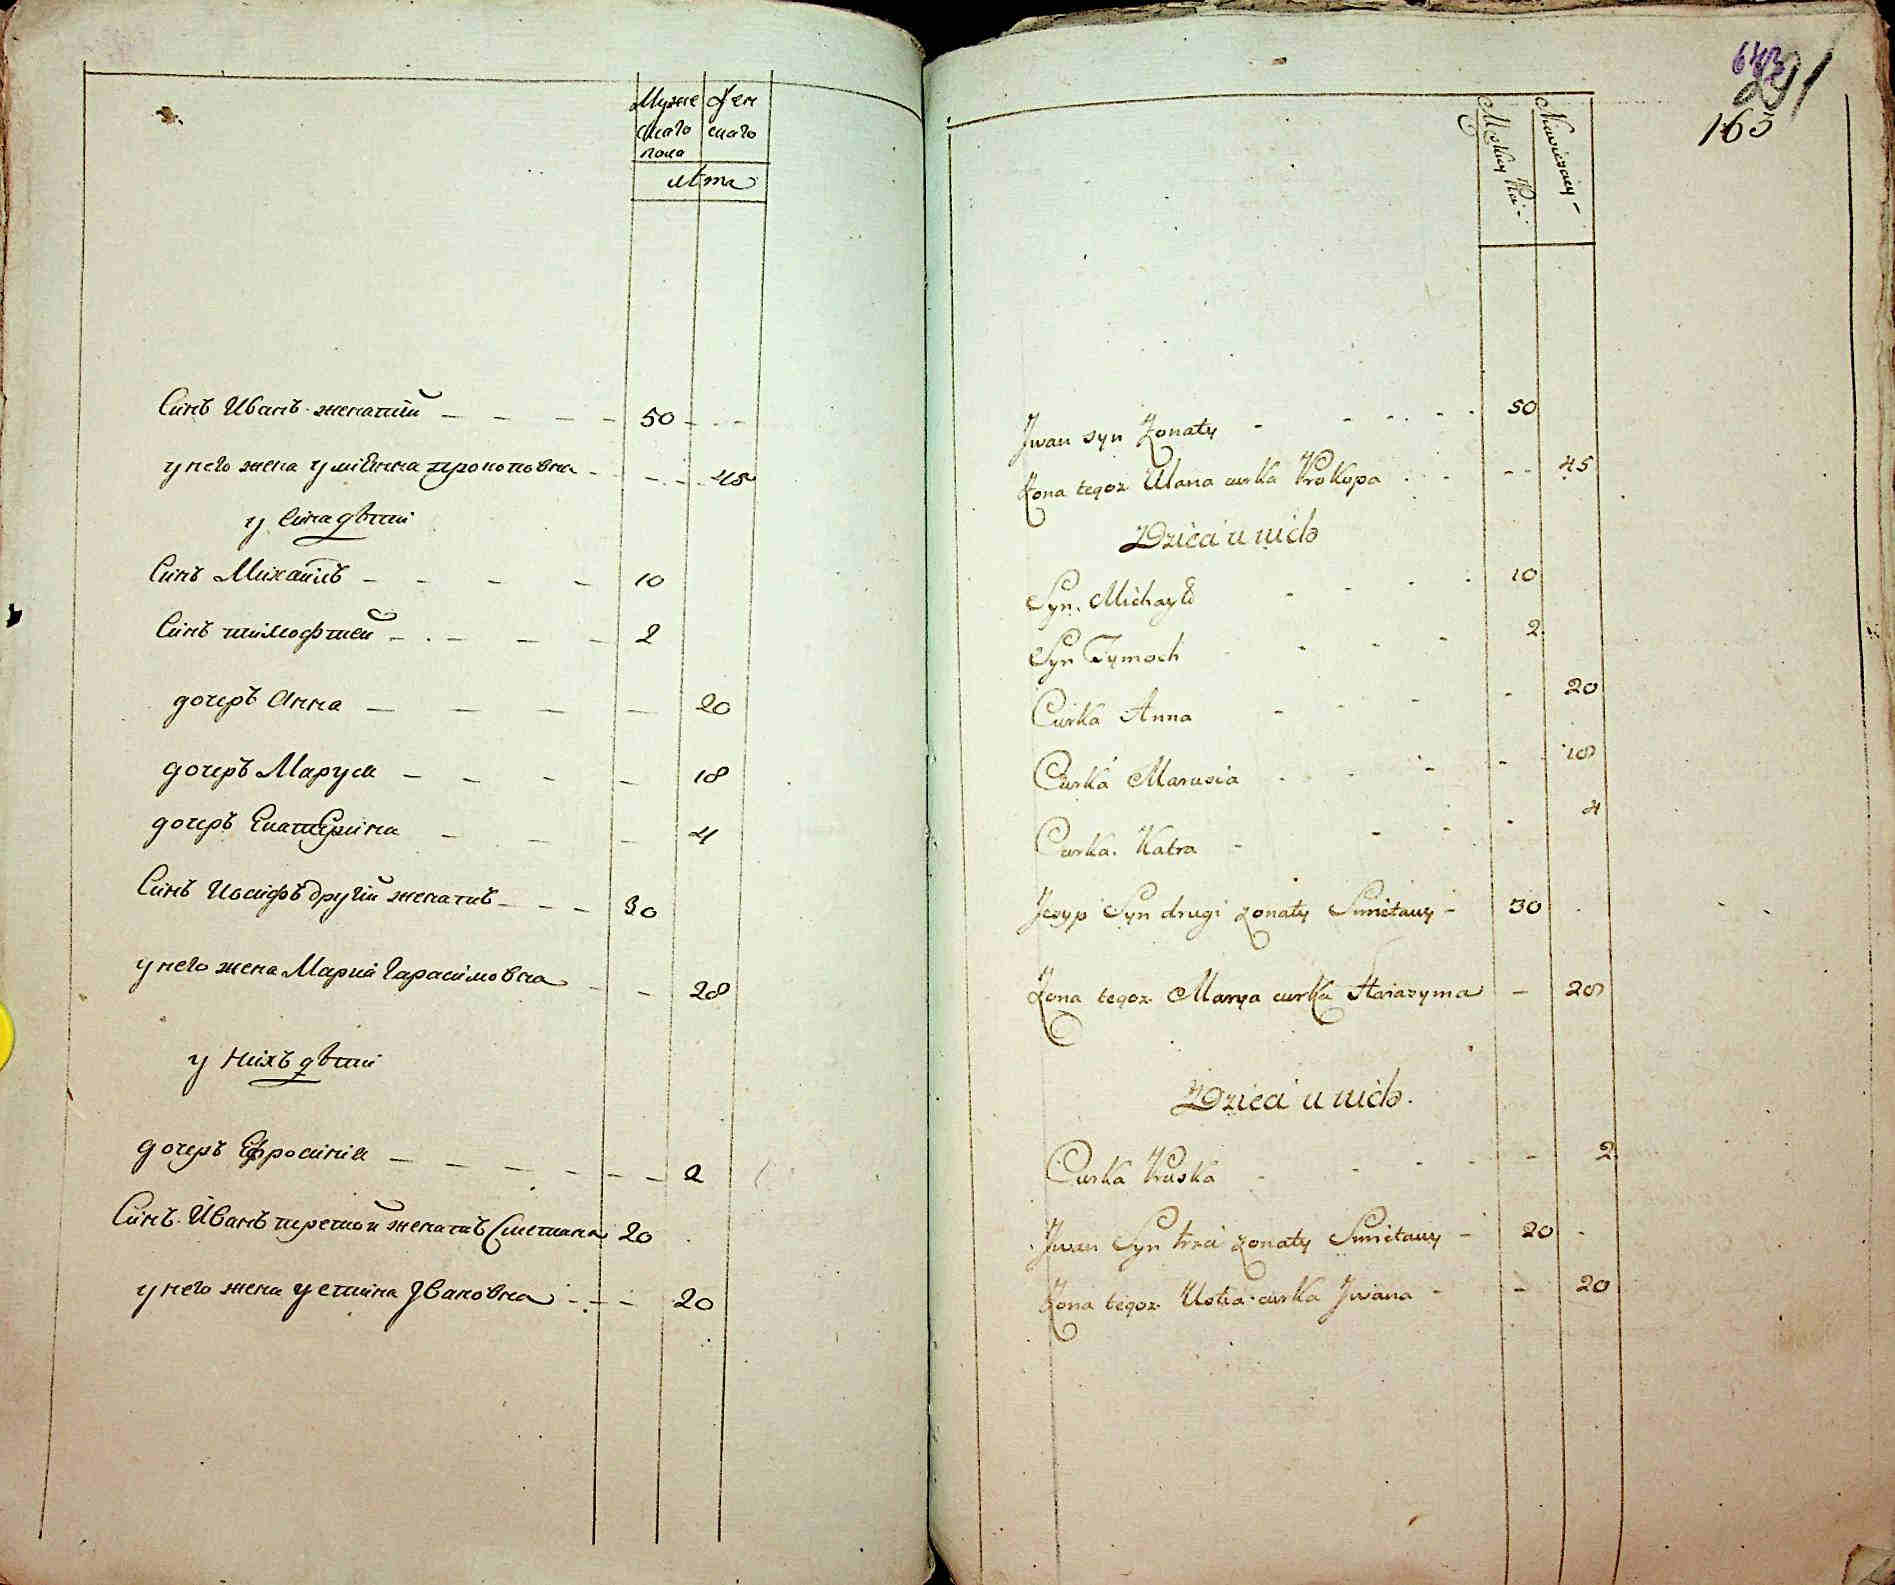 Мужескаго пола
Женскаго
лѣта
Синъ Иванъ женатий 50
у него жена Улиянна прокоповна 45
у Сина дѣти
Синъ Михаилъ 10
Синъ тимофтей 2
дочеръ Анна 20
дочеръ Маруся 18
дочеръ Екатерина 4
Синъ Иосифъ другий женатъ 30
у него жена Мария Гарасимовна 28
у нихъ дѣти
дочеръ Ефросиния 2
Синъ Иванъ третой женатъ Сметана 20
у него жена устина Ивановна 20
643
291
163
Jwan syn Zonaty 50
Zona tegoz Ulana curka Prokopa 45
Dzieci u nich
Syn Michayło 10
Syn Tymoch 2
Curka Anna 20
Curka Marusia 18
Curka Katra 4
Jozyp Syn drugi zonaty Smietany 30
Zona tegoz Marya curka Harasyma 28
Dzieci u nich
Curka Pruska 2
Jwan Syn trzci zonaty Smietany 20
Zona tegoz Ustia curka Jwana 20